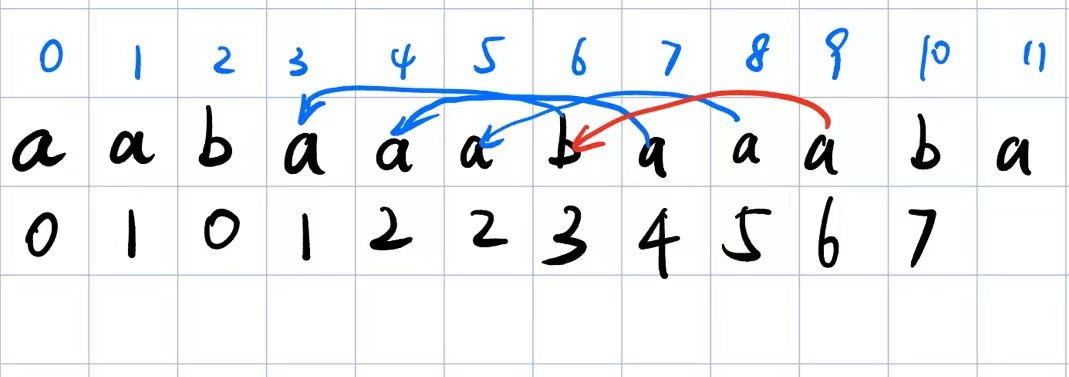 0 1 2 3 4 5 6 7 8 9 10 11
a a b a a a b a a a b a
0 1 0 1 2 2 3 4 5 6 7